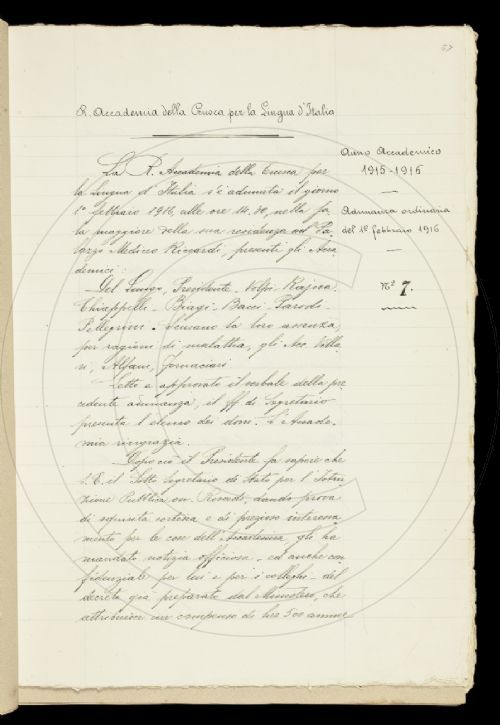 67
R. Accademia della Crusca per la Lingua d'Italia
Anno Accademico
1915-1916
Adunanza ordinaria
del 1º febbraio 1916
Nº 7.
La R. Accademia della Crusca per
la Lingua d'Italia s'è adunata il giorno
1º febbraio 1916, alle ore 14.30, nella sa-
la maggiore della sua residenza nel Pa-
lazzo Mediceo Riccardi, presenti gli Acca-
demici:
Del Lungo, Presidente, Volpi - Rajna
Chiappelli - Biagi - Bacci - Parodi
Pellegrini. Scusano la loro assenza,
per ragioni di malattia, gli Acc. Villa-
ri, Alfani, Fornaciari
Letto e approvato il verbale della pre-
cedente adunanza, il ff di Segretario
presenta l'elenco dei doni. L'Accade-
mia ringrazia.
Dopo ciò il Presidente fa sapere che
S. E. il Sotto Segretario di Stato per l'Istru-
zione Pubblica on. Rosadi, dando prova
di squisita cortesia e di prezioso interessa-
mento per le cose dell'Accademia gli ha
mandato notizia officiosa - ed anche con-
fidenziale per lui e per i colleghi - del
decreto già preparato dal Ministero, che
attribuisce un compenso di lire 500 annue